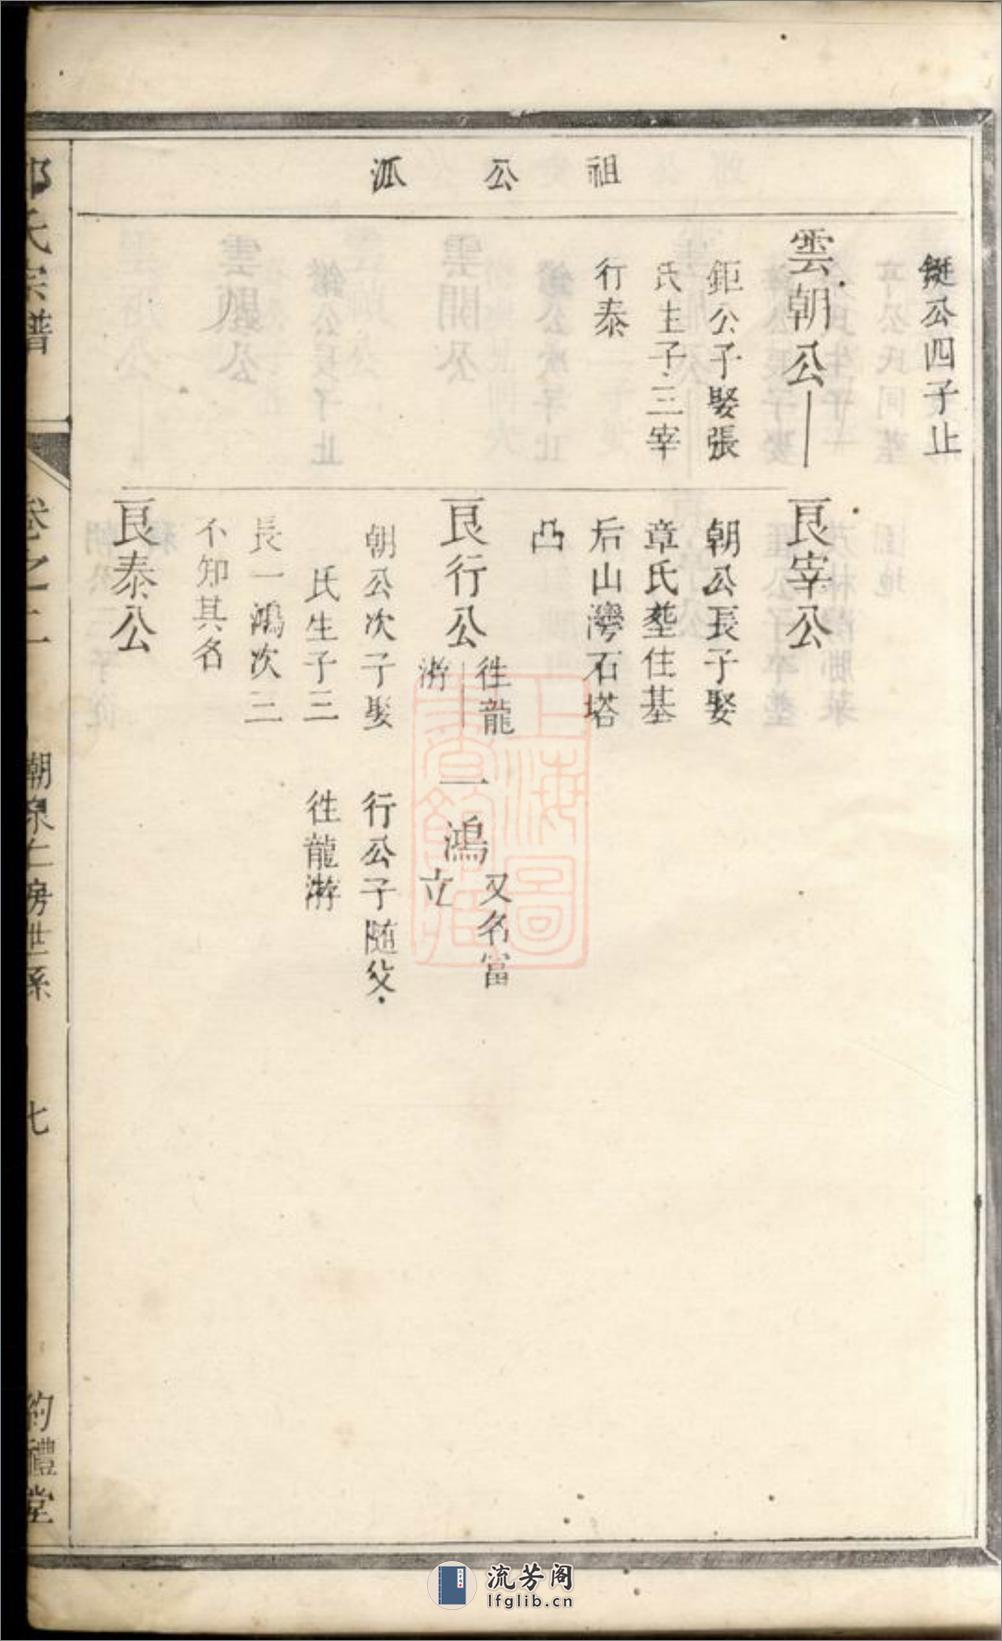 祖公派
鋋公四子止
雲朝公
鉅公子娶張
氏生子三宰
行泰
艮宰公
朝公長子娶
章氏塟住基
后山灣石塔
凸
艮行公
徃龍
游
朝公次子娶
氏生子三
長一鴻次三
不知其名
艮泰公
一鴻
又名富
立
行公子随父
徃龍游
氏宗譜
卷之二
朝泉仁房世系
七
約禮堂
上海圖書館藏
流芳阁
lfglib.cn